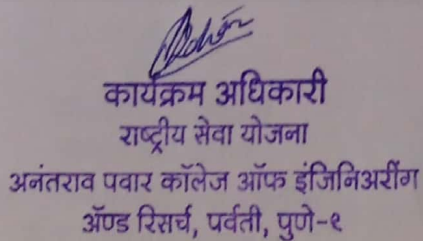 कार्यक्रम अधिकारी
राष्ट्रीय सेवा योजना
अनंतराव पवार कॉलेज ऑफ इंजिनिअरींग
ॲण्ड रिसर्च, पर्वती, पुणे-९